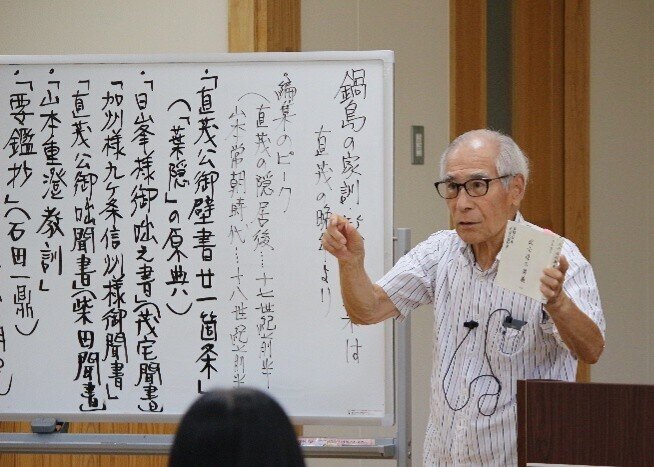 鍋島の家訓
直茂の晩年より
・編纂のピーク
(直茂の隠居後…十七世紀前半
山本常朝時代…十八世紀前半
・「直茂公御壁書廿一箇条」
(「葉隠」の原典)
・「日峯様御咄之書」(茂宅聞書)
・「加州様九ケ条信州様御聞書」
・「直茂公御咄聞書」(柴田聞書)
・「山本重澄教訓」
・「要鑑抄」(石田一鼎)